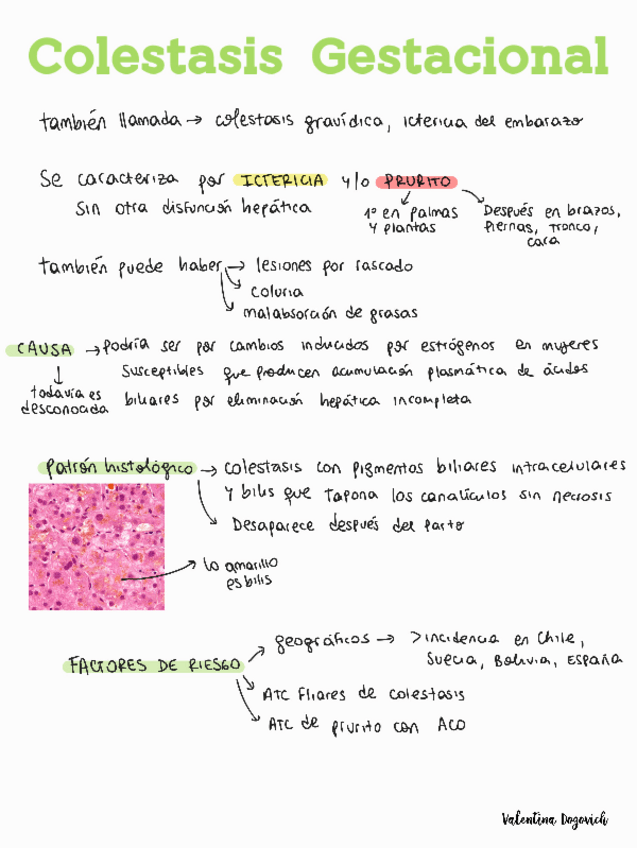 Colestasis Gestacional
también llamada → colestasis gravídica, ictericia del embarazo
Se caracteriza por ICTERICIA y/o PRURITO
sin otra disfunción hepática
1º en palmas
y plantas
Después en brazos,
piernas, tronco,
cara
también puede haber → lesiones por rascado
coluria
malabsorción de grasas
CAUSA → podría ser por cambios inducidos por estrógenos en mujeres
susceptibles que producen acumulación plasmática de ácidos
biliares por eliminación hepática incompleta
todavía es
desconocida
Patrón histológico → colestasis con pigmentos biliares intracelulares
y bilis que tapona los canalículos sin necrosis
Desaparece después del parto
lo amarillo
es bilis
FACTORES DE RIESGO
geográficos → > incidencia en Chile,
Suecia, Bolivia, España
ATC fliares de colestasis
ATC de prurito con ACO
Valentina Dogovich